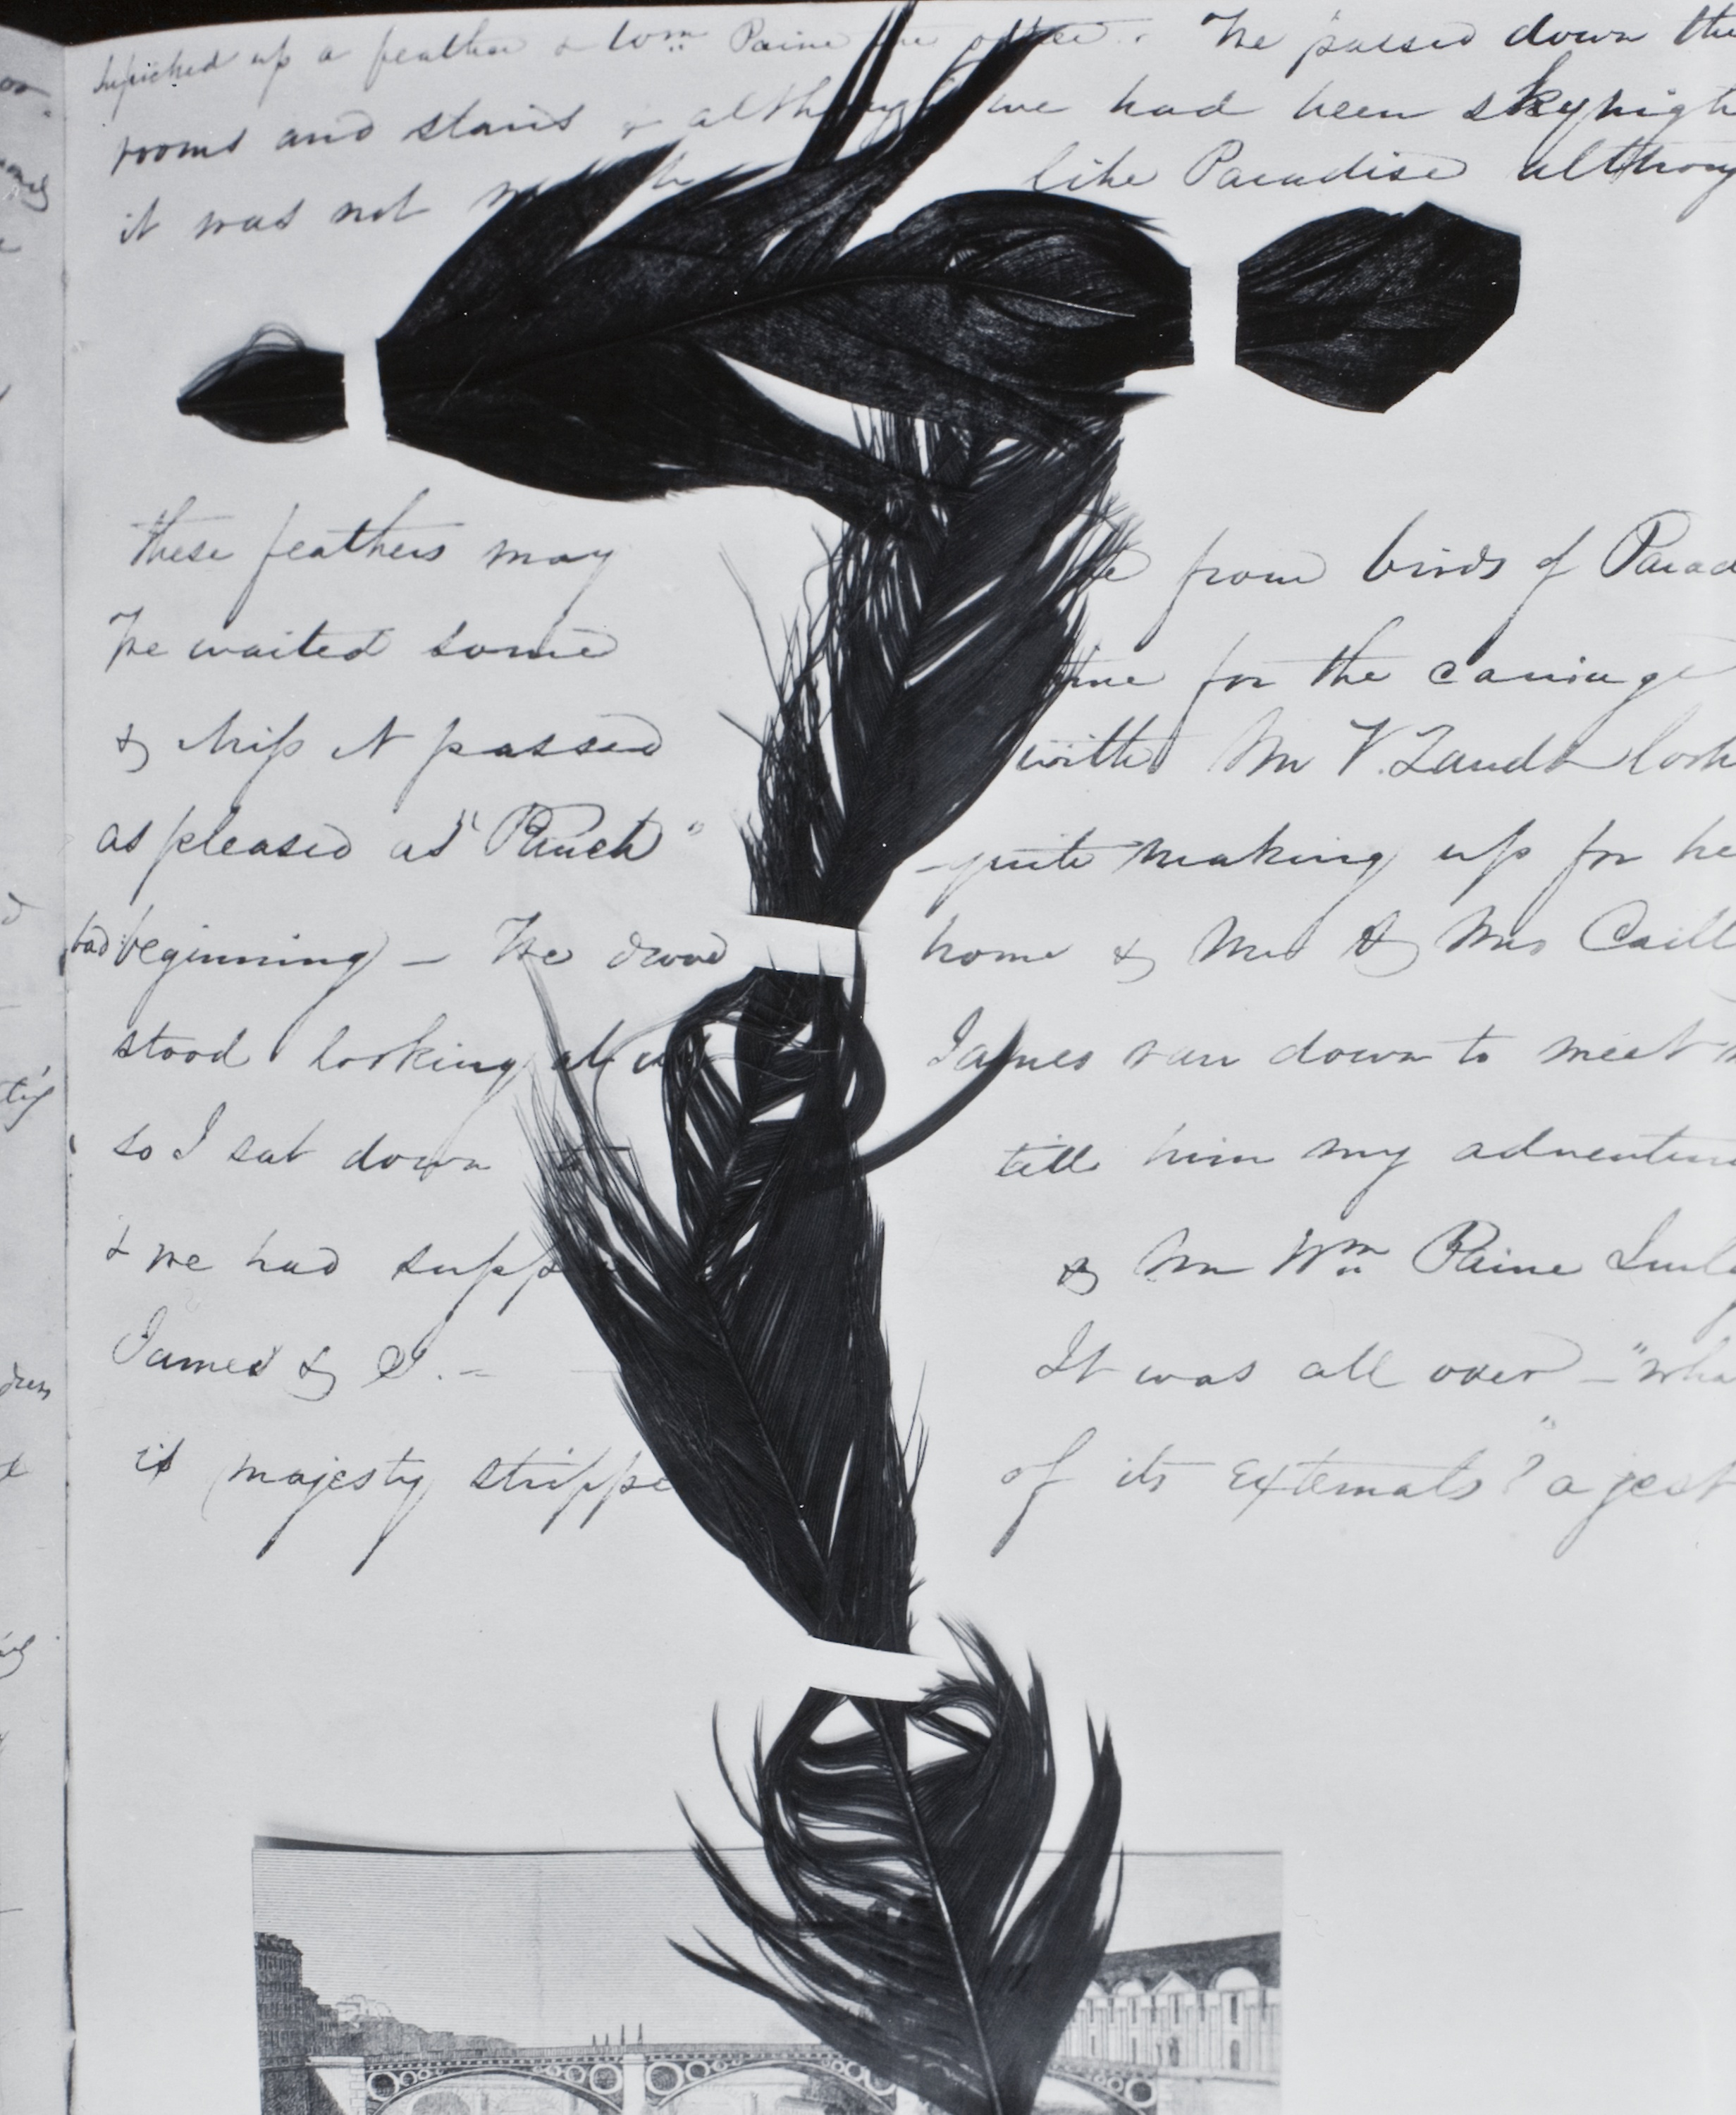 I picked up a feather & Wm Paine the other. We passed down the
rooms and stairs & although we had been sky high
it was not like Paradise although
these feathers may be from birds of Parad
We waited some time for the carriage
& Miss N passed with Mr V. Zandt look
as pleased as "Punch" quite making up for he
bad beginning - We drove home & Mr & Mrs Caill
stood looking at us James ran down to meet
so I sat down to tell him my adventure
& we had supp & Mr Wm Paine
James & I. - It was all over - "wha
is majesty strippe of its externals? a jest"